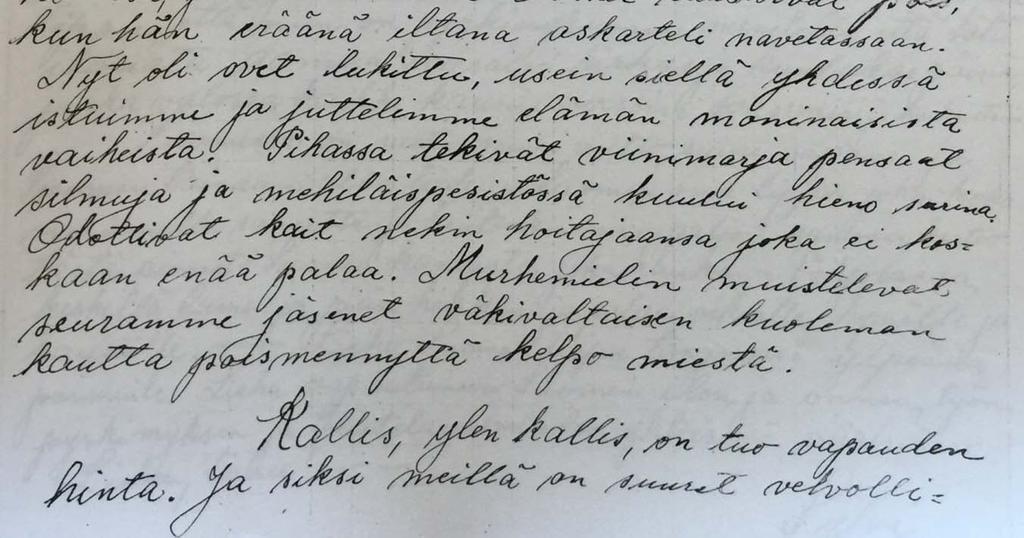 kun hän eräänä iltana askarteli navetassaan.
Nyt oli ovet lukittu, usein siellä yhdessä
istuimme ja juttelimme elämän moninaisista
vaiheista. Pihassa tekivät viinimarja pensaat
silmuja ja mehiläispesistössä kuului hieno surina.
Odottivat kait nekin hoitajaansa joka ei kos=
kaan enää palaa. Murhemielin muistelevat
seuramme jäsenet väkivaltaisen kuoleman
kautta poismennyttä kelpo miestä.
Kallis, ylen kallis, on tuo vapauden
hinta. Ja siksi meillä on suuret velvolli=